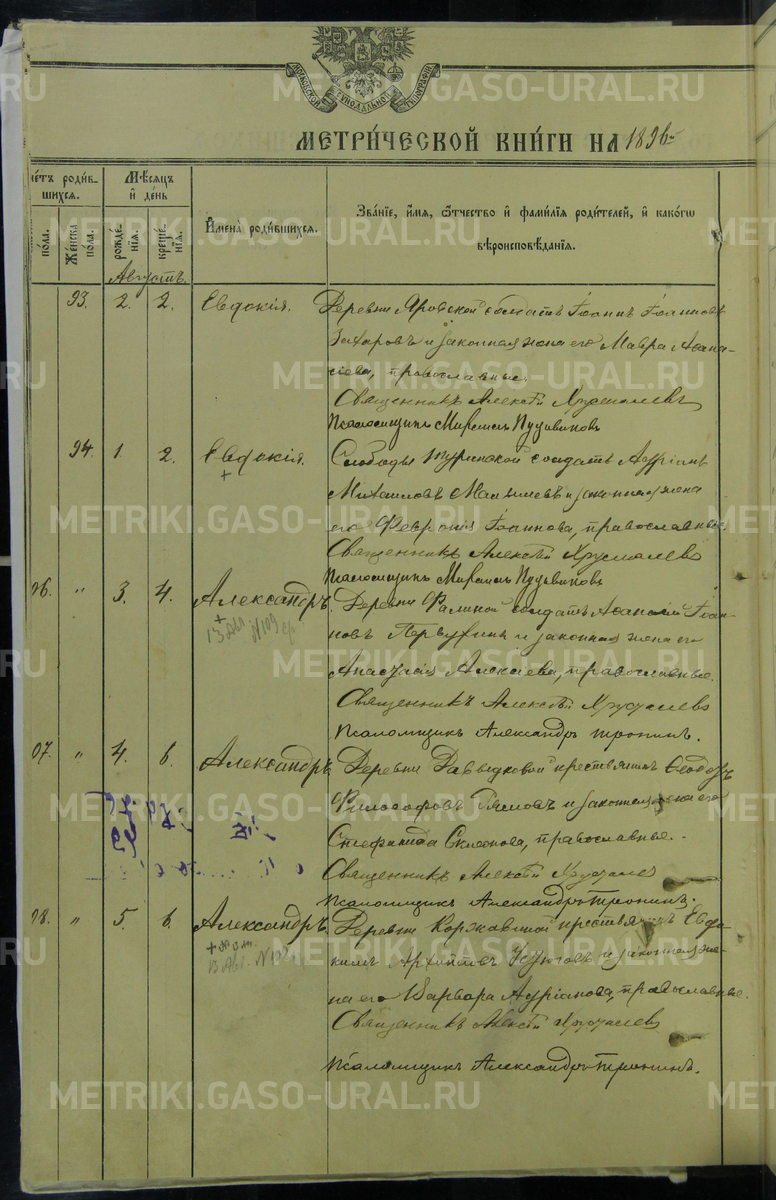 МОСКОВСКОЙ СѴНОДАЛЬНОЙ ТИПОГРАФІИ
METRIKI.GASO-URAL.RU
МЕТРИ́ЧЕСКОЙ КНИ́ГИ НА 1896
четъ роди́в- шихся.
Мѣсяцъ и҆ де́нь
И҆мена̀ роди́вшихся.
Зва́нїе, и҆́мя, ѻ҆́тчество и҆ фами́лїя роди́телей, и҆ како́гѡ вѣроисповѣ́данїя.
по́ла.
Же́нска по́ла.
рожде́нїя.
креще́нїя.
Августъ.
93. 2. 2. Евдокія. Деревни Яровской солдатъ Іоаннъ Іоанновъ
Захаровъ и законная жена его Мавра Афана-
сіева, православные.
Священникъ Алексѣй Хрусталевъ
Псаломщикъ
94. 1. 2. Евдокія. Слободы Туринской солдатъ Адріанъ
Михаиловъ и законная жена
его Февронія Іоаннова, православные.
Священникъ Алексѣй Хрусталевъ
Псаломщикъ
96. " 3. 4. Александръ. Деревни Фалиной солдатъ Афанасій Іоан-
новъ Первухинъ и законная жена его
13 Авг. N109
Анастасія Алексѣева, православные.
Священникъ Алексѣй Хрусталевъ
Псаломщикъ Александръ Тронинъ.
97. " 4. 6. Александръ. Деревни Давыдковой крестьянинъ Ѳеодоръ
Философовъ и законная жена его
Стефанида Симеонова, православные.
Священникъ Алексѣй Хрусталевъ
Псаломщикъ Александръ Тронинъ.
98. " 5. 6. Александръ. Деревни Коржавиной крестьянинъ Евдо-
кимъ Архиповъ Устюговъ и законная же-
13 Авг.
на его Варвара Адріанова, православные.
Священникъ Алексѣй Хрусталевъ
Псаломщикъ Александръ Тронинъ.